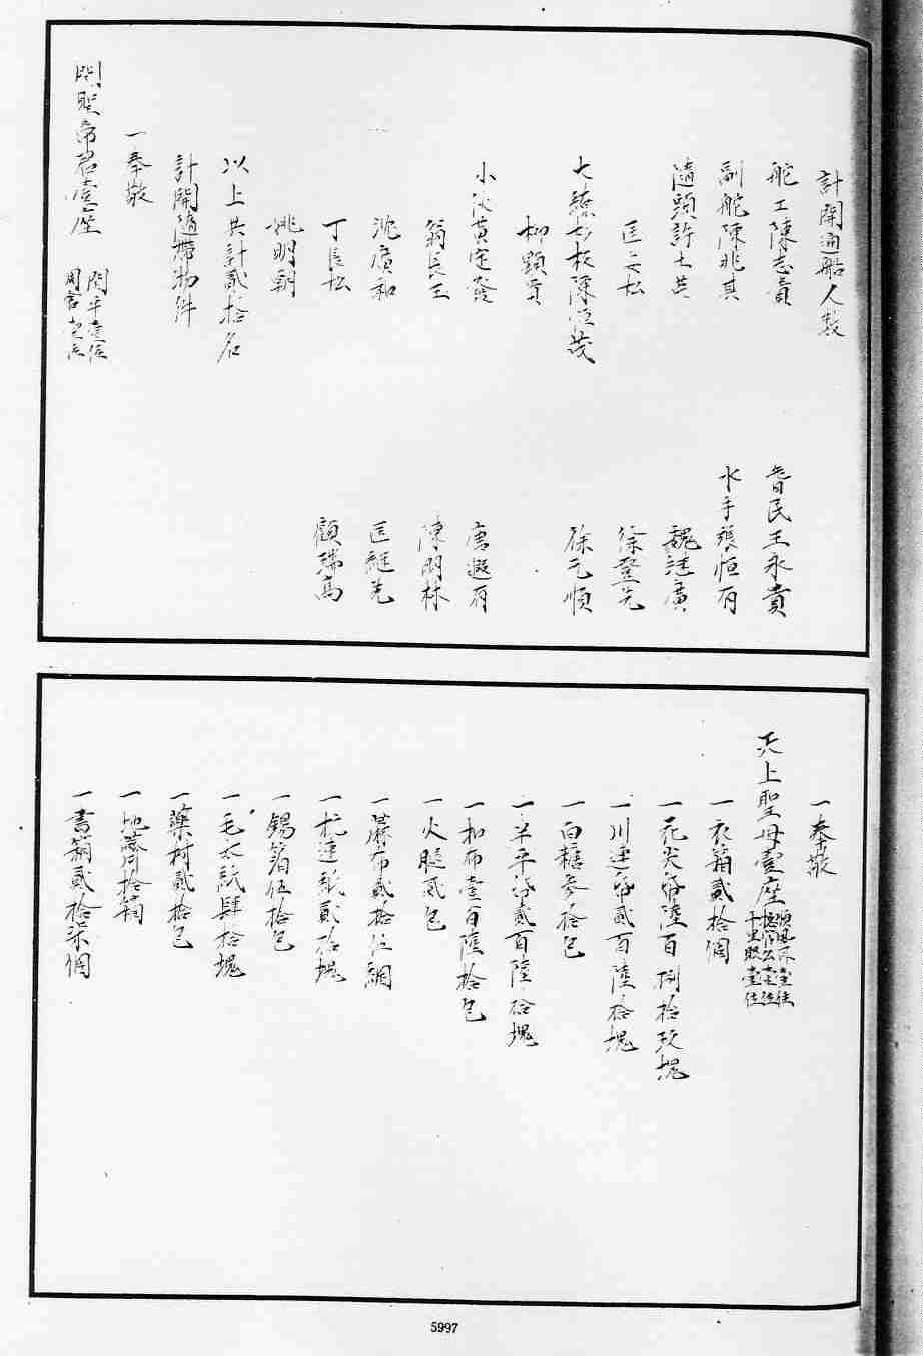 計開通船人数
舵工陳志貴 耆民王永貴
副舵陳兆其 水手張恒有
隨頭許士其 魏廣
匡松 徐登先
大繚杉板陳茂 徐元順
柳顕
小伙黄定發 唐遐有
翁長玉 陳朋林
沈廣和 匡継先
丁長松 顧瑞高
姚明朝
以上共計貳拾名
計開隨帶物件
一奉敬
関聖帝君壹座 関平壹位 周倉壹位
一奉敬
天上聖母壹座 順風耳壹位 総管公壹位 千里眼壹位
一衣箱貳拾個
一花尖帋陸百捌拾玖塊
一川連帋貳百陸拾塊
一白糖参拾包
一羊平帋貳百陸拾塊
一扣布壹百陸拾包
一火腿貳包
一蔴布貳拾伍綑
一杭連帋貳拾塊
一錫箔伍拾包
一毛太紙肆拾塊
一藥材貳拾包
一地蓆拾筒
一書箱貳拾柒個
5997